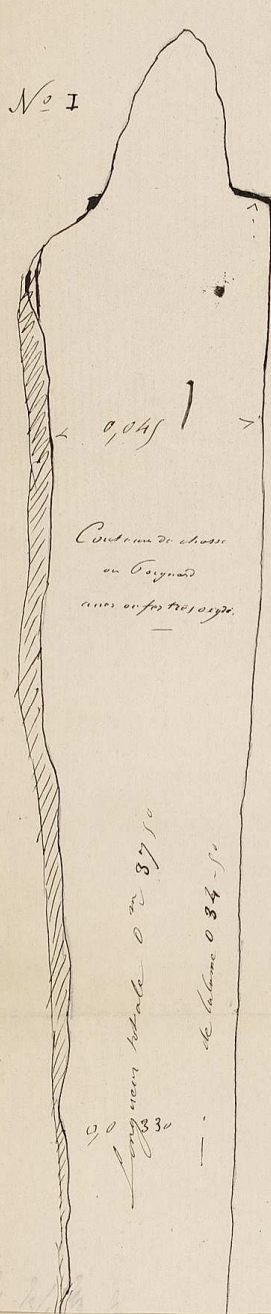 No I
0,045
Couteau de chasse
ou Poignard
acier ou fer très oxydé.
Longueur totale 0 m 3750
— de la lame 0 34-50
0,0330